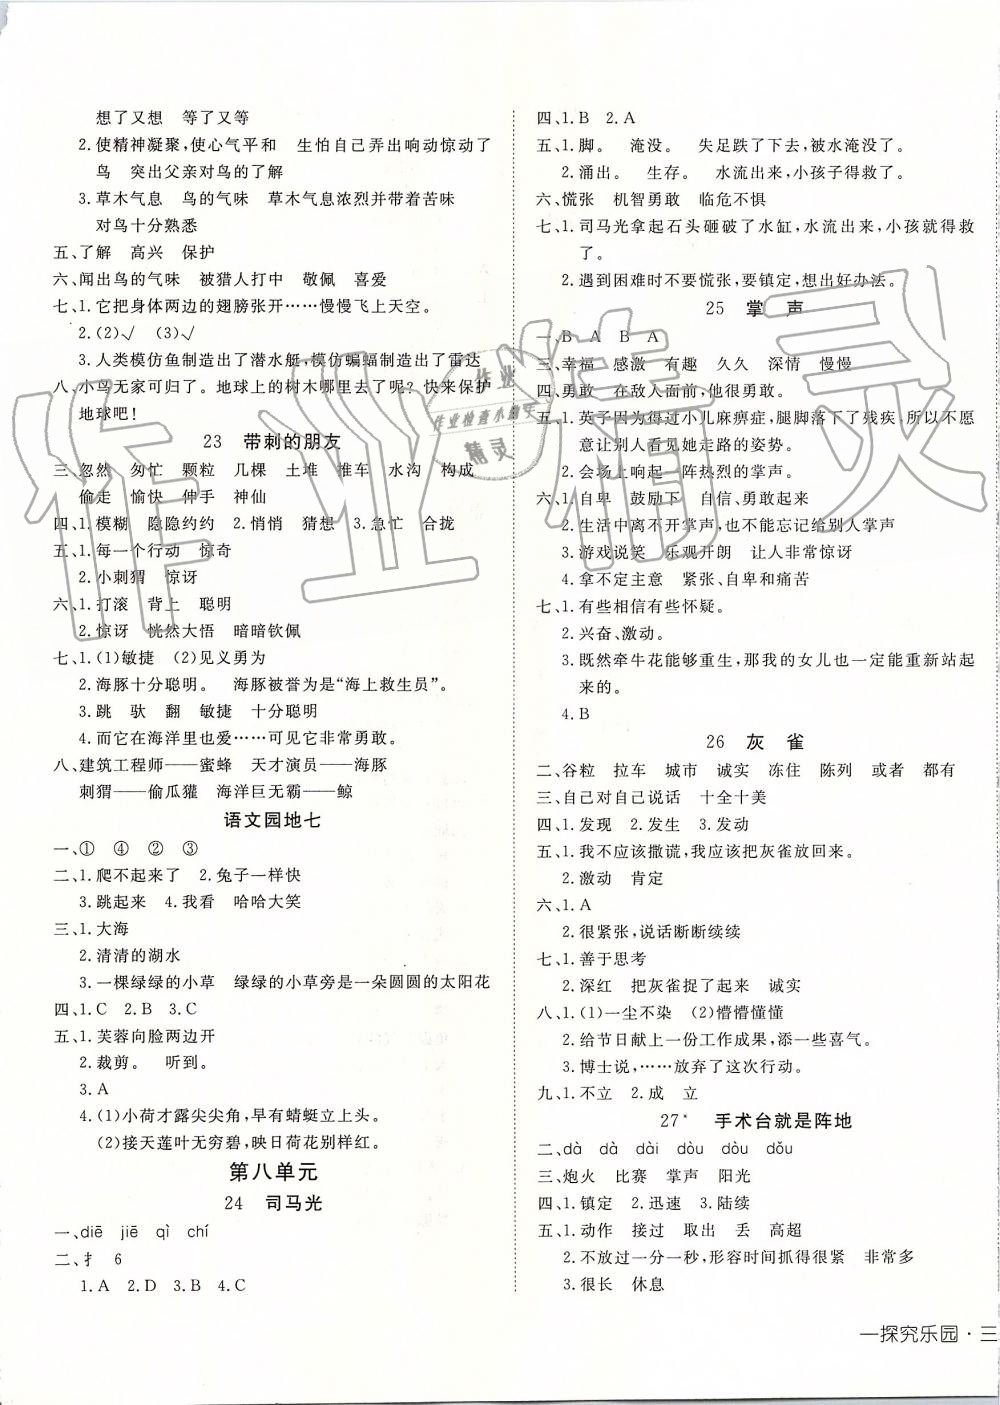 想了又想　等了又等
2.使精神凝聚,使心气平和　生怕自己弄出响动惊动了
鸟　突出父亲对鸟的了解
3.草木气息　鸟的气味　草木气息浓烈并带着苦味
对鸟十分熟悉
五、了解　高兴　保护
六、闻出鸟的气味　被猎人打中　敬佩　喜爱
七、1.它把身体两边的翅膀张开……慢慢飞上天空。
2.(2)√　(3)√
3.人类模仿鱼制造出了潜水艇 模仿蝙蝠制造出了雷达
八、小鸟无家可归了。地球上的树木哪里去了呢? 快来保护
地球吧!
23　带刺的朋友
三、忽然　匆忙　颗粒　几棵　土堆　推车　水沟　构成
偷走　愉快　伸手　神仙
四、1.模糊　隐隐约约　2.悄悄　猜想　3.急忙　合拢
五、1.每一个行动　惊奇
2.小刺猬　惊讶
六、1.打滚　背上　聪明
2.惊讶　恍然大悟　暗暗钦佩
七、1.(1)敏捷　(2)见义勇为
2.海豚十分聪明。　海豚被誉为是“海上救生员”。
3.跳　驮　翻　敏捷　十分聪明
4.而它在海洋里也爱……可见它非常勇敢。
八、建筑工程师——蜜蜂　天才演员——海豚
刺猬——偷瓜獾　海洋巨无霸——鲸
语文园地七
一、①　④　②　③
二、1.爬不起来了　2.兔子一样快
3.跳起来　4.我看　哈哈大笑
三、1.大海
2.清清的湖水
3.一棵绿绿的小草　绿绿的小草旁是一朵圆圆的太阳花
四、1.C　2.B　3.C
五、1.芙蓉向脸两边开
2.裁剪。　听到。
3.A
4.(1)小荷才露尖尖角,早有蜻蜓立上头。
(2)接天莲叶无穷碧,映日荷花别样红。
第八单元
24　司马光
一、diē　jiē　qì　chí
二、扌　6
1.A　2.D　3.B　4.C
四、1.B　2.A
五、1.脚。　淹没。　失足跌了下去,被水淹没了。
2.涌出。　生存。　水流出来,小孩子得救了。
六、慌张　机智勇敢　临危不惧
七、1.司马光拿起石头砸破了水缸,水流出来,小孩就得救
了。
2.遇到困难时不要慌张,要镇定,想出好办法。
25　掌　声
一、B　A　B　A
三、幸福　感激　有趣　久久　深情　慢慢
四、勇敢　在敌人面前,他很勇敢。
五、1.英子因为得过小儿麻痹症,腿脚落下了残疾,所以不愿
意让别人看见她走路的姿势。
2.会场上响起一阵热烈的掌声。
六、1.自卑　鼓励下　自信、勇敢起来
2.生活中离不开掌声,也不能忘记给别人掌声
3.游戏说笑　乐观开朗　让人非常惊讶
4.拿不定主意　紧张、自卑和痛苦
七、1.有些相信有些怀疑。
2.兴奋、激动。
3.既然牵牛花能够重生,那我的女儿也一定能重新站起
来的。
4.B
26　灰　雀
二、谷粒　拉车　城市　诚实　冻住　陈列　或者　都有
三、自己对自己说话　十全十美
四、1.发现　2.发生　3.发动
五、1.我不应该撒谎,我应该把灰雀放回来。
2.激动　肯定
六、1.A
2.很紧张,说话断断续续
七、1.善于思考
2.深红　把灰雀捉了起来　诚实
八、1.(1)一尘不染　(2)懵懵懂懂
2.给节日献上一份工作成果,添一些喜气。
3.博士说,……放弃了这次行动。
九、1.不立　2.成　立
27*　手术台就是阵地
二、dà　dà　dài　dòu　dòu　dǒu
三、炮火　比赛　掌声　阳光
四、1.镇定　2.迅速　3.陆续
五、1.动作　接过　取出　丢　高超
2.不放过一分一秒,形容时间抓得很紧　非常多
3.很长　休息
一探究乐园·三
作业精灵
作业
作业检查小助手
精灵